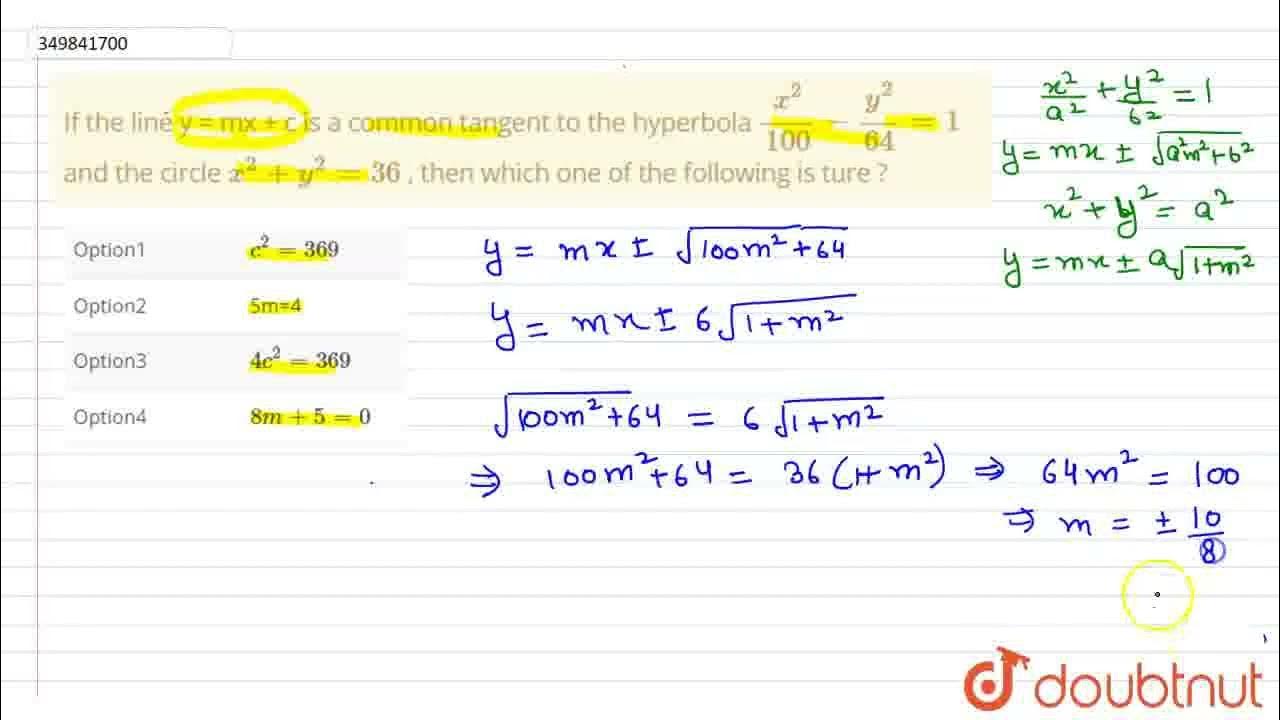 349841700
If the line y = mx + c is a common tangent to the hyperbola x²/100 − y²/64 = 1
and the circle x² + y² = 36 , then which one of the following is ture ?
Option1 c² = 369
Option2 5m=4
Option3 4c² = 369
Option4 8m + 5 = 0
x²/a² + y²/b² = 1
y = mx ± √(a²m²+b²)
x² + y² = a²
y = mx ± a√(1+m²)
y = mx ± √(100m²+64)
y = mx ± 6√(1+m²)
√(100m²+64) = 6√(1+m²)
⇒ 100m²+64 = 36(1+m²) ⇒ 64m² = 100
⇒ m = ± 10/8
doubtnut